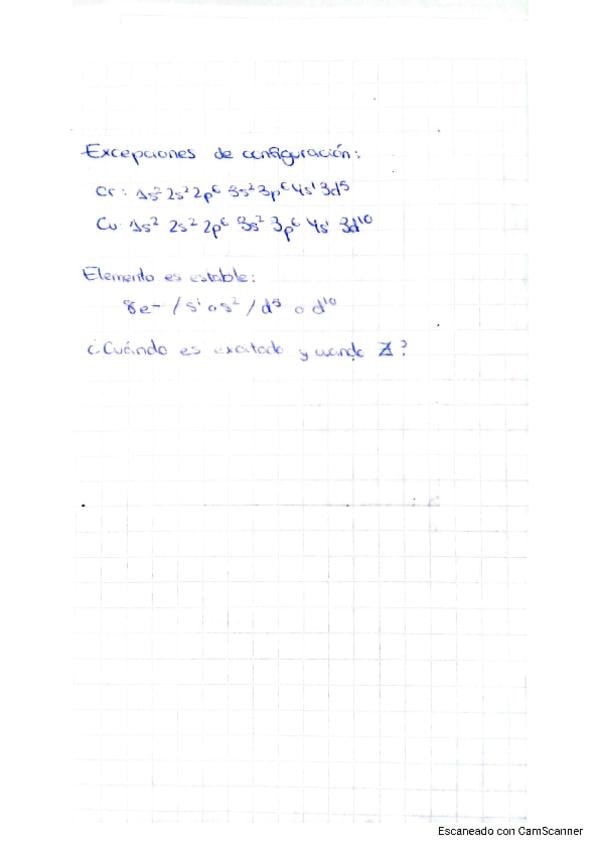 Excepciones de configuración:
Cr: 1s² 2s² 2p⁶ 3s² 3p⁶ 4s¹ 3d⁵
Cu 1s² 2s² 2p⁶ 3s² 3p⁶ 4s¹ 3d¹⁰
Elemento es estable:
8e⁻ / s¹ o s² / d⁵ o d¹⁰
¿Cuándo es excitado y cuando Z?
Escaneado con CamScanner